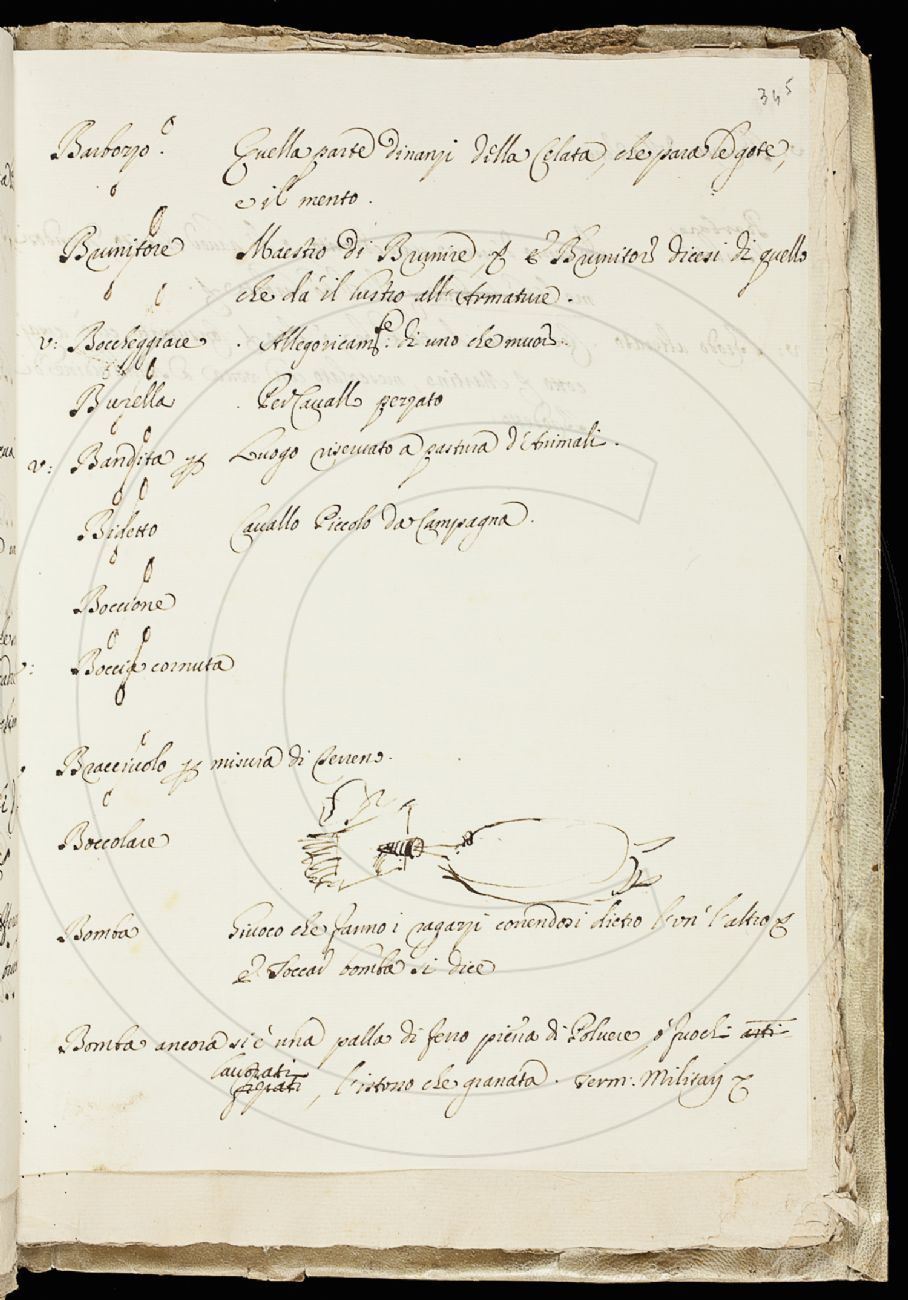 345
Barbozzo. Quella parte dinanzi della Celata, che para le gote,
e il mento.
Brunitore Maestro di Brunire e Brunitore dicesi di quello
che dà il lustro all'Armature.
v: Boccheggiare. Allegoricamte: di uno che muore.
Burella. Per Cavallo pezzato
v: Bandita Luogo riservato a pastura d'Animali.
Bidetto Cavallo Piccolo da Campagna.
Boccione
Boccia cornuta
Bracciuolo misura di Terreno.
Boccolare
Bomba Giuoco che fanno i ragazzi correndosi dietro l'un' l'altro
e Toccar bomba si dice
Bomba ancora si è una palla di ferro piena di Polvere, o' fuochi arti-
lavorati
ficiati, l'istesso che granata. Term. Militare